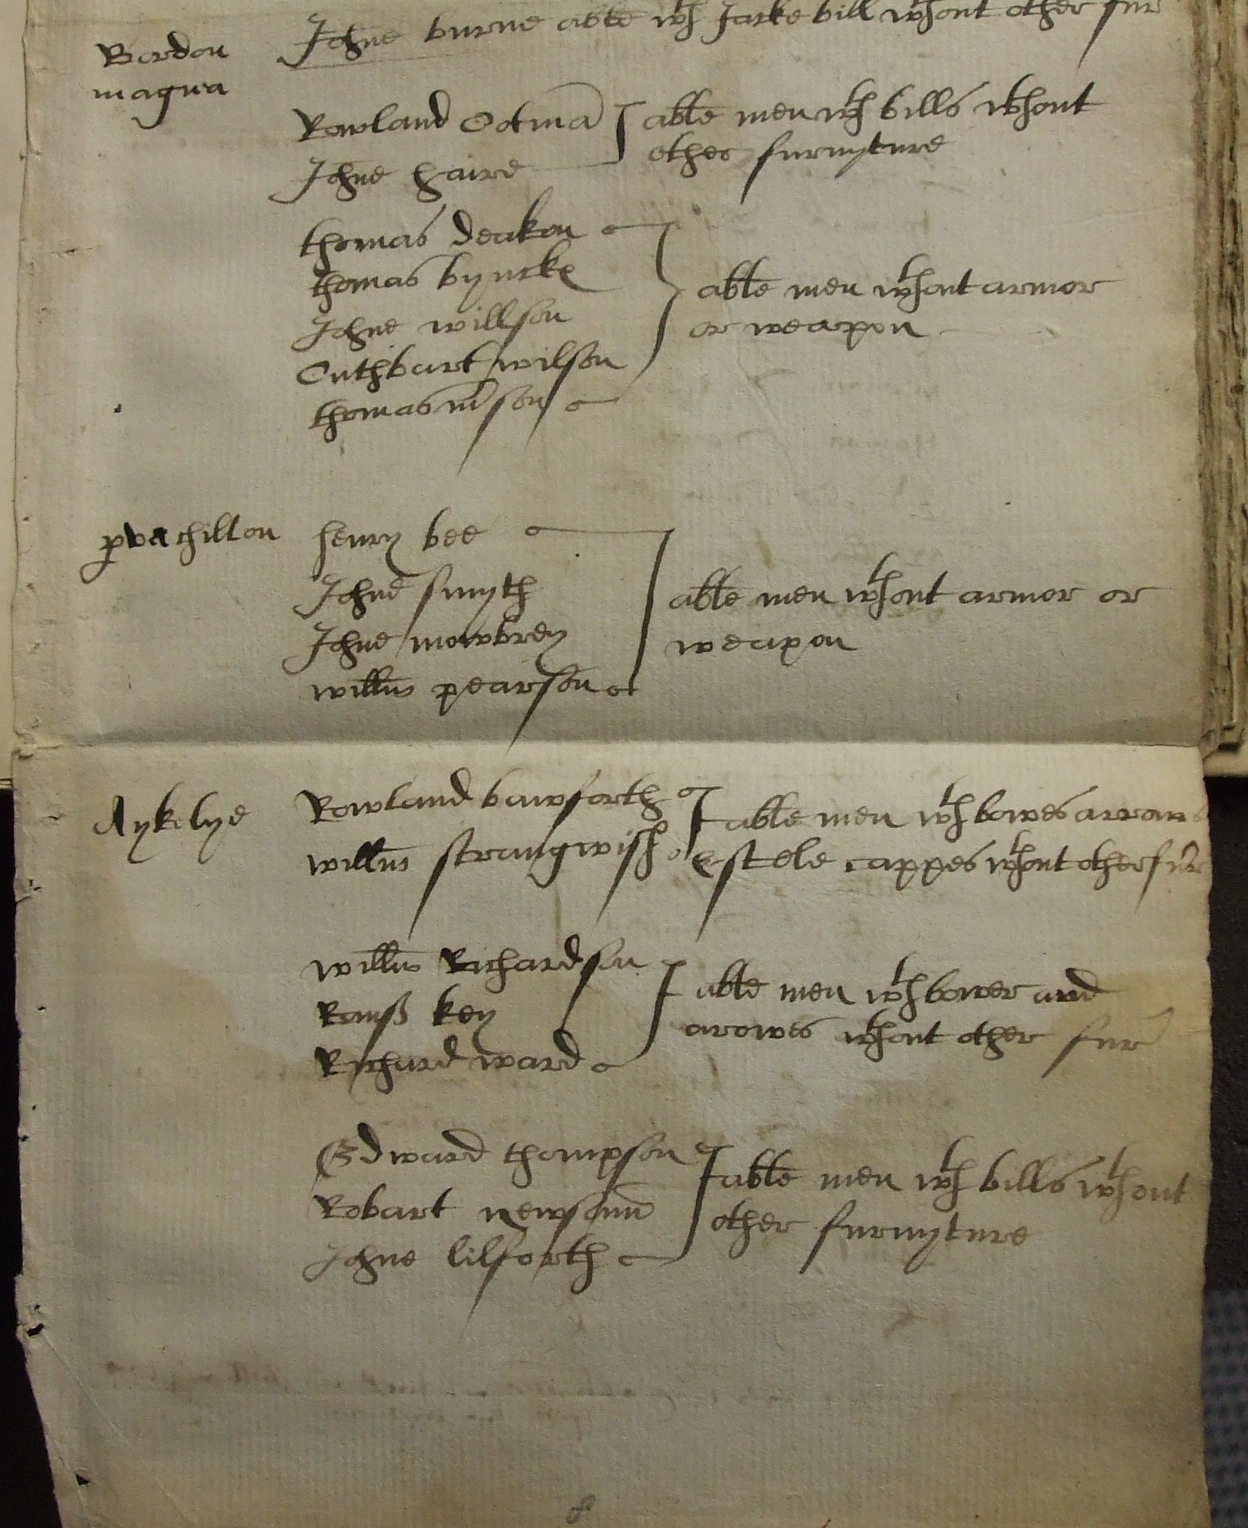 Bordon
magna
Johne burne able wth Jacke bill wthout other fur
Rowland Cotmā
Johne haire
able men wth bills wthout
other furnyture
thomas deakon
thomas byncke
Johne willson
Cuthbart wilson
thomas
able men wthout armor
or weapon
pva chilton
henry bee
Johne smyth
Johne mowbrey
willm pearson
able men wthout armor or
weapon
Aykelye
Rowland bawforth
willm strangwish
able men wth bowes arrows
& stele cappes wthout other fur
willm Richardson
key
Richard ward
able men wth bowes and
arowes wthout other fur
Edward thompson
Robart newsom
Johne lilforth
able men wth bills wthout
other furnyture